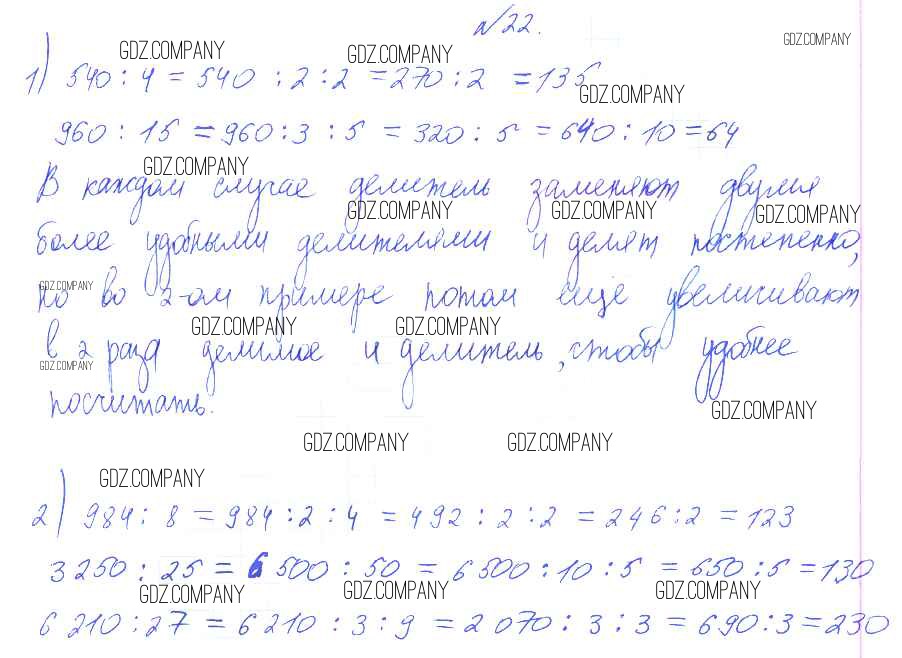 №22.
GDZ.COMPANY GDZ.COMPANY GDZ.COMPANY
1) 540 : 4 = 540 : 2 : 2 = 270 : 2 = 135
GDZ.COMPANY
960 : 15 = 960 : 3 : 5 = 320 : 5 = 640 : 10 = 64
GDZ.COMPANY
В каждом случае делитель заменяют двумя
GDZ.COMPANY GDZ.COMPANY GDZ.COMPANY
более удобными делителями и делят постепенно,
GDZ.COMPANY
но во 2-ом примере потом еще увеличивают
GDZ.COMPANY GDZ.COMPANY
в 2 раза делимое и делитель, чтобы удобнее
GDZ.COMPANY
посчитать.
GDZ.COMPANY
GDZ.COMPANY GDZ.COMPANY
GDZ.COMPANY
2) 984 : 8 = 984 : 2 : 4 = 492 : 2 : 2 = 246 : 2 = 123
3 250 : 25 = 6 500 : 50 = 6 500 : 10 : 5 = 650 : 5 = 130
GDZ.COMPANY GDZ.COMPANY GDZ.COMPANY
6 210 : 27 = 6 210 : 3 : 9 = 2 070 : 3 : 3 = 690 : 3 = 230